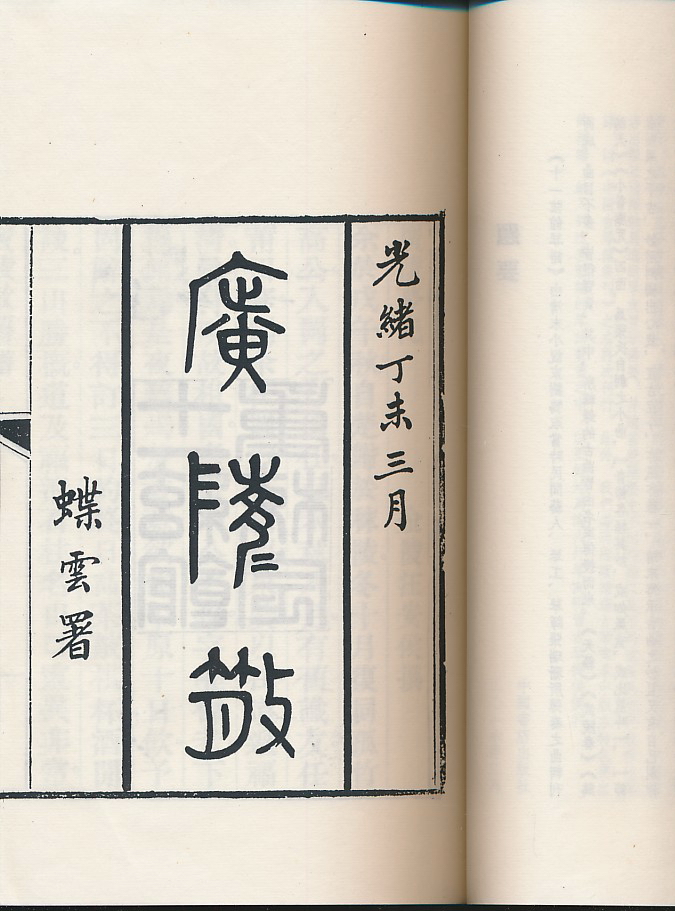 光緒丁未三月
廣陵散
蝶雲署